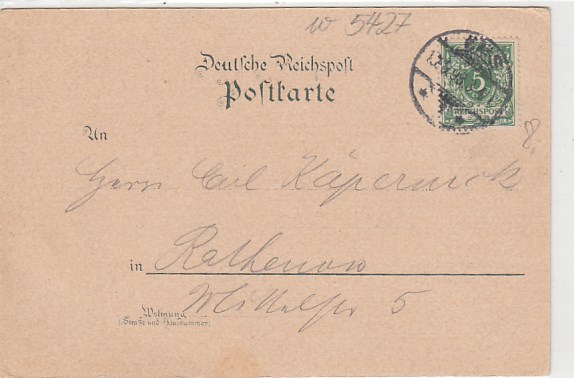 w 5427
Deutsche Reichspost
Postkarte
5
REICHSPOST
An
Herrn Carl Käpernick
in Rathenow
Mittelstr 5
Wohnung
(Straße und Hausnummer)
8.